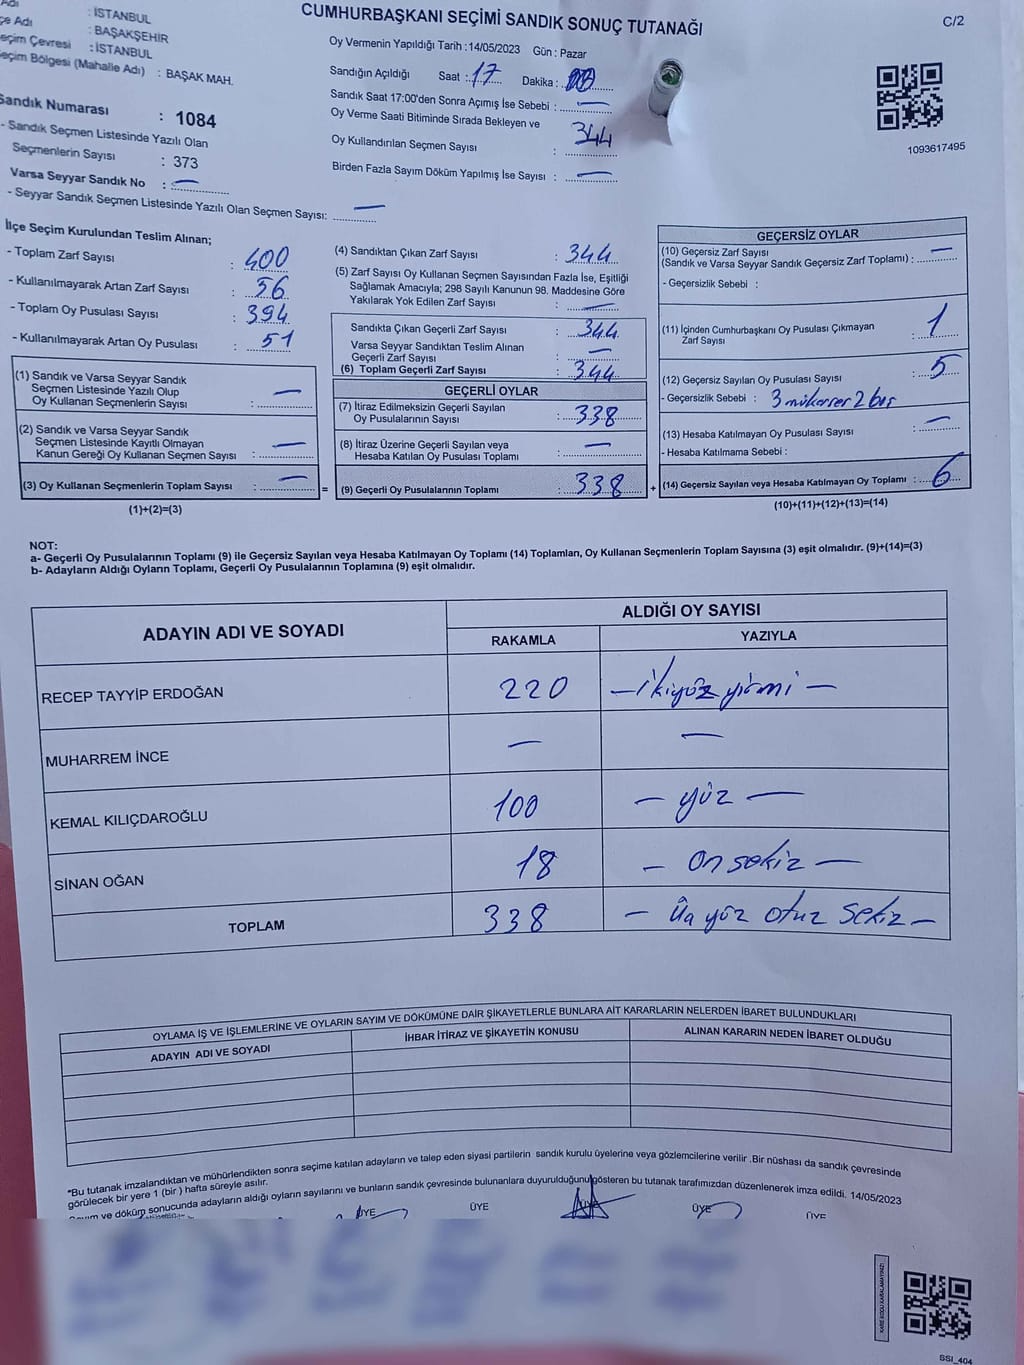 CUMHURBAŞKANI SEÇİMİ SANDIK SONUÇ TUTANAĞI
C/2
Adı : İSTANBUL
çe Adı : BAŞAKŞEHİR
eçim Çevresi : İSTANBUL
eçim Bölgesi (Mahalle Adı) : BAŞAK MAH.
Sandık Numarası : 1084
- Sandık Seçmen Listesinde Yazılı Olan
Seçmenlerin Sayısı : 373
Varsa Seyyar Sandık No : —
- Seyyar Sandık Seçmen Listesinde Yazılı Olan Seçmen Sayısı: —
Oy Vermenin Yapıldığı Tarih :14/05/2023 Gün : Pazar
Sandığın Açıldığı Saat : 17 Dakika : 00
Sandık Saat 17:00'den Sonra Açımış İse Sebebi : —
Oy Verme Saati Bitiminde Sırada Bekleyen ve
Oy Kullandırılan Seçmen Sayısı : 344
Birden Fazla Sayım Döküm Yapılmış İse Sayısı : —
1093617495
İlçe Seçim Kurulundan Teslim Alınan;
- Toplam Zarf Sayısı : 400
- Kullanılmayarak Artan Zarf Sayısı : 56
- Toplam Oy Pusulası Sayısı : 394
- Kullanılmayarak Artan Oy Pusulası : 51
(1) Sandık ve Varsa Seyyar Sandık
Seçmen Listesinde Yazılı Olup
Oy Kullanan Seçmenlerin Sayısı : —
(2) Sandık ve Varsa Seyyar Sandık
Seçmen Listesinde Kayıtlı Olmayan
Kanun Gereği Oy Kullanan Seçmen Sayısı : —
(3) Oy Kullanan Seçmenlerin Toplam Sayısı : — =
(1)+(2)=(3)
(4) Sandıktan Çıkan Zarf Sayısı : 344
(5) Zarf Sayısı Oy Kullanan Seçmen Sayısından Fazla İse, Eşitliği
Sağlamak Amacıyla; 298 Sayılı Kanunun 98. Maddesine Göre
Yakılarak Yok Edilen Zarf Sayısı : —
Sandıkta Çıkan Geçerli Zarf Sayısı : 344
Varsa Seyyar Sandıktan Teslim Alınan
Geçerli Zarf Sayısı : —
(6) Toplam Geçerli Zarf Sayısı : 344
GEÇERLİ OYLAR
(7) İtiraz Edilmeksizin Geçerli Sayılan
Oy Pusulalarının Sayısı : 338
(8) İtiraz Üzerine Geçerli Sayılan veya
Hesaba Katılan Oy Pusulası Toplamı : —
(9) Geçerli Oy Pusulalarının Toplamı : 338 +
GEÇERSİZ OYLAR
(10) Geçersiz Zarf Sayısı
(Sandık ve Varsa Seyyar Sandık Geçersiz Zarf Toplamı) : —
- Geçersizlik Sebebi :
(11) İçinden Cumhurbaşkanı Oy Pusulası Çıkmayan
Zarf Sayısı : 1
(12) Geçersiz Sayılan Oy Pusulası Sayısı : 5
- Geçersizlik Sebebi : 3 mükerrer 2 boş
(13) Hesaba Katılmayan Oy Pusulası Sayısı : —
- Hesaba Katılmama Sebebi :
(14) Geçersiz Sayılan veya Hesaba Katılmayan Oy Toplamı : 6
(10)+(11)+(12)+(13)=(14)
NOT:
a- Geçerli Oy Pusulalarının Toplamı (9) ile Geçersiz Sayılan veya Hesaba Katılmayan Oy Toplamı (14) Toplamları, Oy Kullanan Seçmenlerin Toplam Sayısına (3) eşit olmalıdır. (9)+(14)=(3)
b- Adayların Aldığı Oyların Toplamı, Geçerli Oy Pusulalarının Toplamına (9) eşit olmalıdır.
ADAYIN ADI VE SOYADI
ALDIĞI OY SAYISI
RAKAMLA YAZIYLA
RECEP TAYYİP ERDOĞAN 220 — ikiyüz yirmi —
MUHARREM İNCE — —
KEMAL KILIÇDAROĞLU 100 — yüz —
SİNAN OĞAN 18 — On sekiz —
TOPLAM 338 — Üç yüz otuz sekiz —
OYLAMA İŞ VE İŞLEMLERİNE VE OYLARIN SAYIM VE DÖKÜMÜNE DAİR ŞİKAYETLERLE BUNLARA AİT KARARLARIN NELERDEN İBARET BULUNDUKLARI
ADAYIN ADI VE SOYADI İHBAR İTİRAZ VE ŞİKAYETİN KONUSU ALINAN KARARIN NEDEN İBARET OLDUĞU
*Bu tutanak imzalandıktan ve mühürlendikten sonra seçime katılan adayların ve talep eden siyasi partilerin sandık kurulu üyelerine veya gözlemcilerine verilir .Bir nüshası da sandık çevresinde
görülecek bir yere 1 (bir ) hafta süreyle asılır.
Sayım ve döküm sonucunda adayların aldığı oyların sayılarını ve bunların sandık çevresinde bulunanlara duyurulduğunu gösteren bu tutanak tarafımızdan düzenlenerek imza edildi. 14/05/2023
ÜYE ÜYE ÜYE ÜYE ÜYE
SSI_404